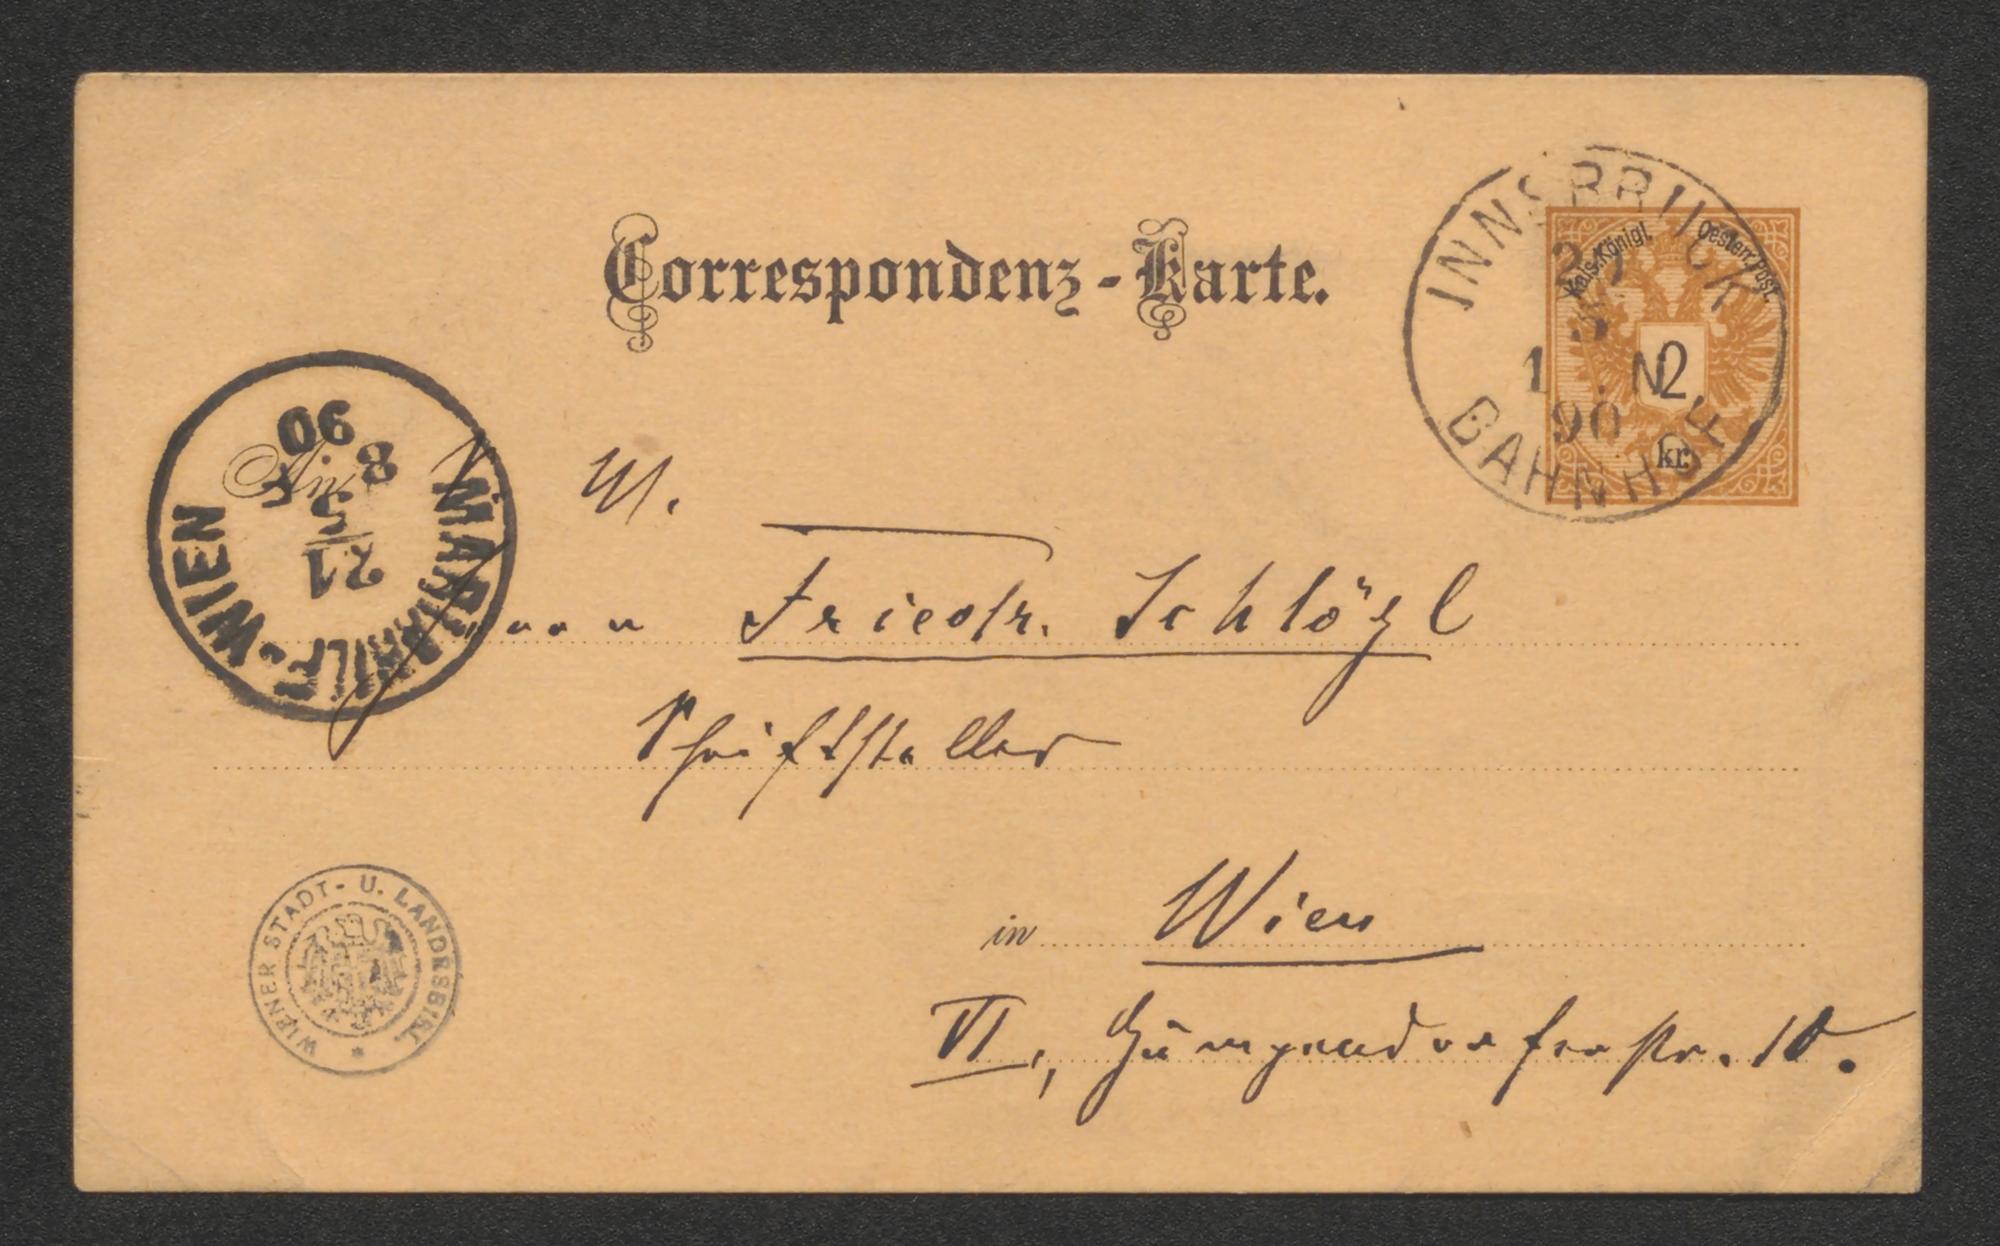 Correspondenz-Karte.
INNSBRUCK
Kais. Königl. Oesterr. Post.
2 kr.
90
BAHNHOF
MARIAHILF-WIEN
21
5
8 F
90
An
Friedr. Schlögl
Schriftsteller
in Wien
VI, Gumpendorferstr. 10.
WIENER STADT- U. LANDESBIBL.